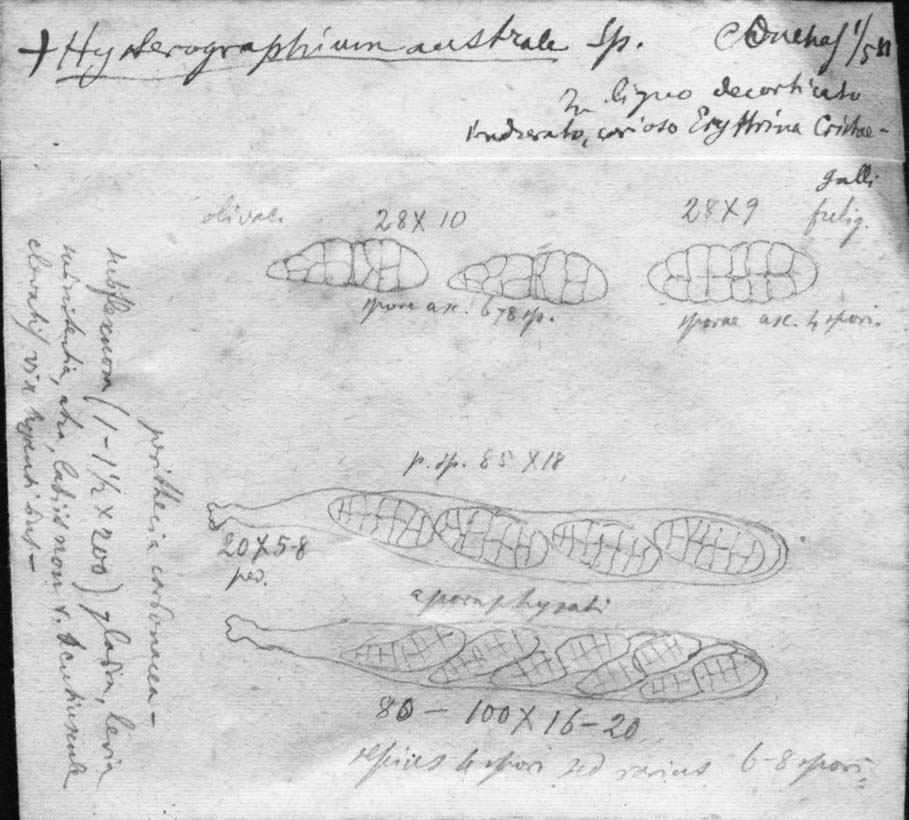 + Hysterographium australe Sp.
1/5 81
In ligno decorticato
indurato, carioso Erythrina Cristae-
galli
olivac.
28 X 10
28 X 9
fulig.
spore asc. 6 7 8 sp.
sporae asc. 4 spori.
p. sp. 85 X 18
20 X 5-8
ped.
aparaphysati
80 – 100 X 16–20
sepius 4 spori sed rarius 6-8 spori
perithecia carbonacea –
subflexuosa (1 – 1 1/2 X 200) glabra, levia
atra, labiis non v.